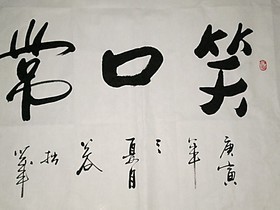 笑口常
庚寅年之夏月拙筆